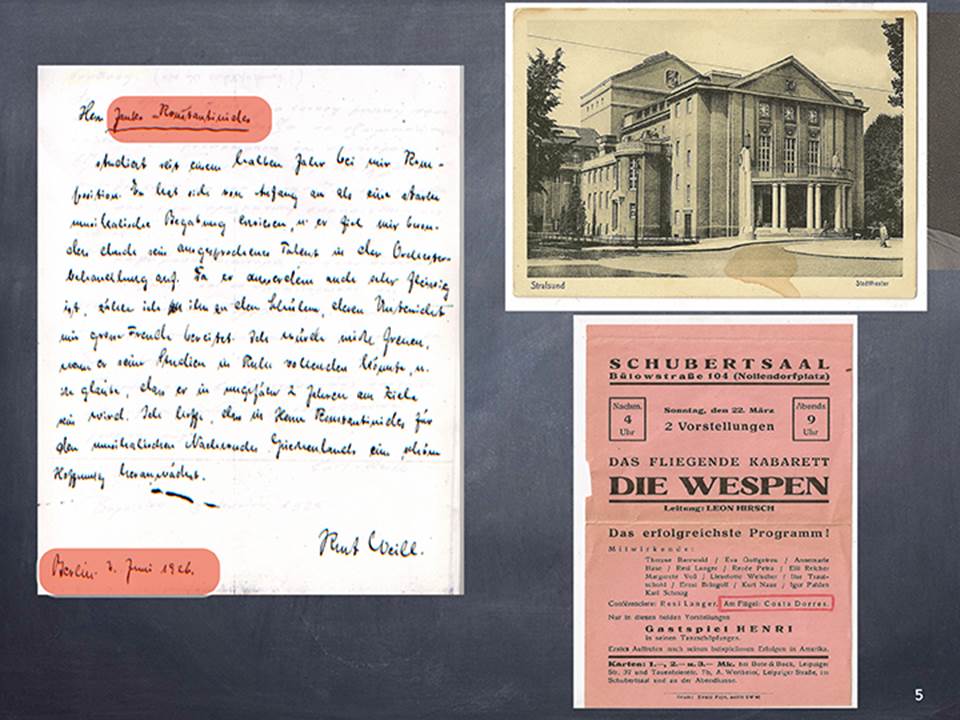 Herr Yankos Konstantinides
studiert seit einem halben Jahr bei mir Kom-
position. Er hat sich von Anfang an als eine starke
musikalische Begabung erwiesen, u. er fiel mir beson-
ders durch sein ausgesprochenes Talent in der Orchester-
behandlung auf. Da er ausserdem auch sehr fleissig
ist, zählen ich ihn zu den Schülern, deren Unterricht
mir grosse Freude bereitet. Ich würde mich freuen,
wenn er seine Studien in Ruhe vollenden könnte, u.
ich glaube, dass er in ungefähr 2 Jahren am Ziele
sein wird. Ich hoffe, dass in Herrn Konstantinides für
den musikalischen Nachwuchs Griechenlands eine schöne
Hoffnung heranwächst.
Kurt Weill.
Berlin. 3. Juni 1926.
Stralsund
Stadttheater
SCHUBERTSAAL
Bülowstraße 104 (Nollendorfplatz)
Nachm.
4
Uhr
Sonntag, den 22. März
2 Vorstellungen
Abends
9
Uhr
DAS FLIEGENDE KABARETT
DIE WESPEN
Leitung: LEON HIRSCH
Das erfolgreichste Programm!
Mitwirkende:
/ Annemarie
Hase / Resi Langer / Renée Petra / Elli Reicher
Margarete Voß / / Ilse Traut-
schold / Ernst / Kurt Nauc / Igor Pahlen
Karl Schnog
Conférencière: Resi Langer, Am Flügel: Costa Dorres.
Nur in diesen beiden Vorstellungen
Gastspiel HENRI
in seinen Tanzschöpfungen.
Erstes Auftreten nach seinen beispiellosen Erfolgen in Amerika.
Karten: 1.–, 2.– u. 3.– Mk. bei Bote & Bock, Leipziger
Str. 37 und Tauentzienstr. 7b, A. Wertheim, Leipziger Straße, im
Schubertsaal und an der Abendkasse.
5